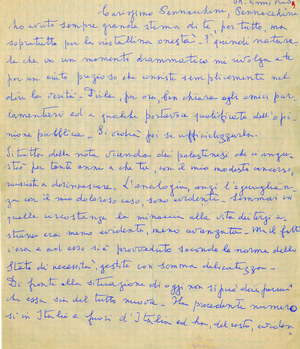 Carissimo Pennacchini,
ho avuto sempre grande stima di te, per tutto, ma
soprattutto per la cristallina onestà. È quindi natura-
le che in un momento drammatico mi rivolga a te
per un aiuto prezioso che consiste semplicemente nel
dire la verità. Dirla, per ora, ben chiara agli amici par-
lamentari ed a qualche portavoce qualificato dell'opi-
nione pubblica. Si vedrà poi se ufficializzarla.
Si tratta della nota vicenda dei palestinesi che ci angu-
stiò per tanti anni e che tu, con il mio modesto concorso,
riuscisti a disinnescare. L'analogia, anzi l'eguaglian-
za con il mio doloroso caso, sono evidenti. Semmai in
quelle circostanze la minaccia alla vita dei terzi e-
stranei era meno evidente, meno avanzata. Ma il fatto
c'era e ad esso si è provveduto secondo le norme dello
Stato di necessità, gestite con somma delicatezza.
Di fronte alla situazione di oggi non si può dire perciò
che essa sia del tutto nuova. Ha precedenti numero
si in Italia e fuori d'Italia ed ha, del resto, eviden